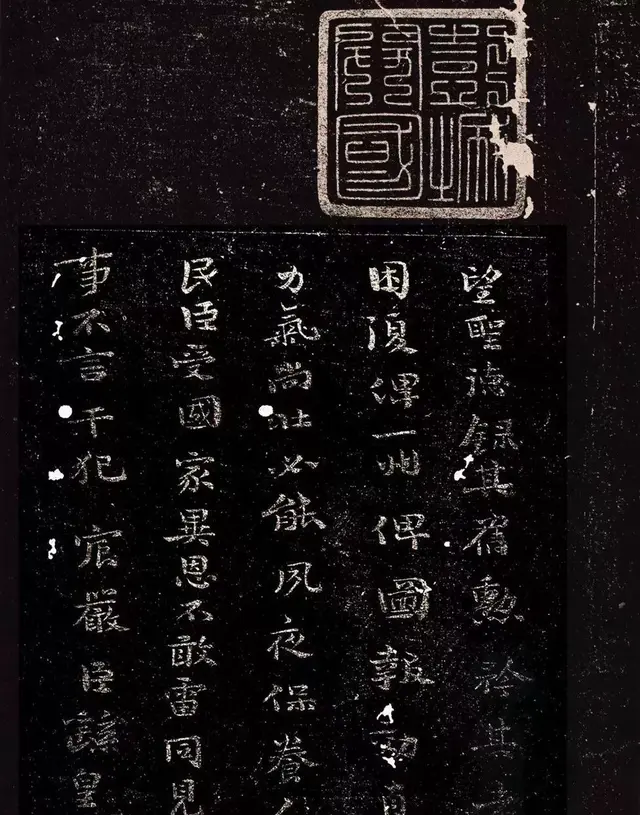 彭城
開國
望聖德錄其舊勳矜其
困復俾一州俾圖報効
力氣尚壯必能夙夜保養
民臣受國家異恩不敢雷同見
事不言干犯宸嚴臣繇皇